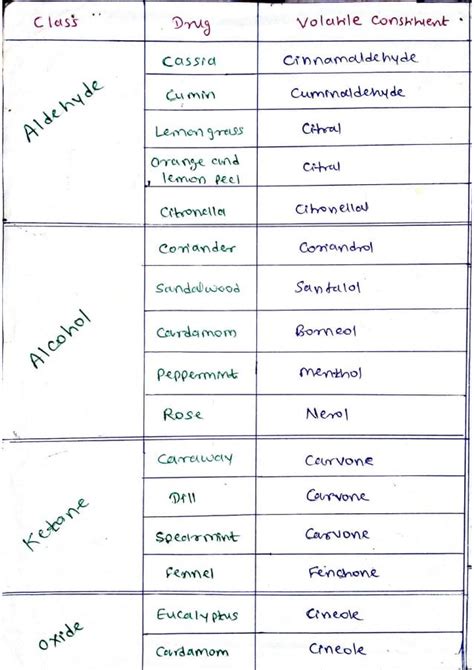 Class Drug Volatile Constituent
Aldehyde
Cassia Cinnamaldehyde
Cumin Cuminaldehyde
Lemongrass Citral
Orange and
lemon peel Citral
Citronella Citronellal
Alcohol
Coriander Coriandrol
Sandalwood Santalol
Cardamom Borneol
Peppermint Menthol
Rose Nerol
Ketone
Caraway Carvone
Dill Carvone
Spearmint Carvone
Fennel Fenchone
Oxide
Eucalyptus Cineole
Cardamom Cineole